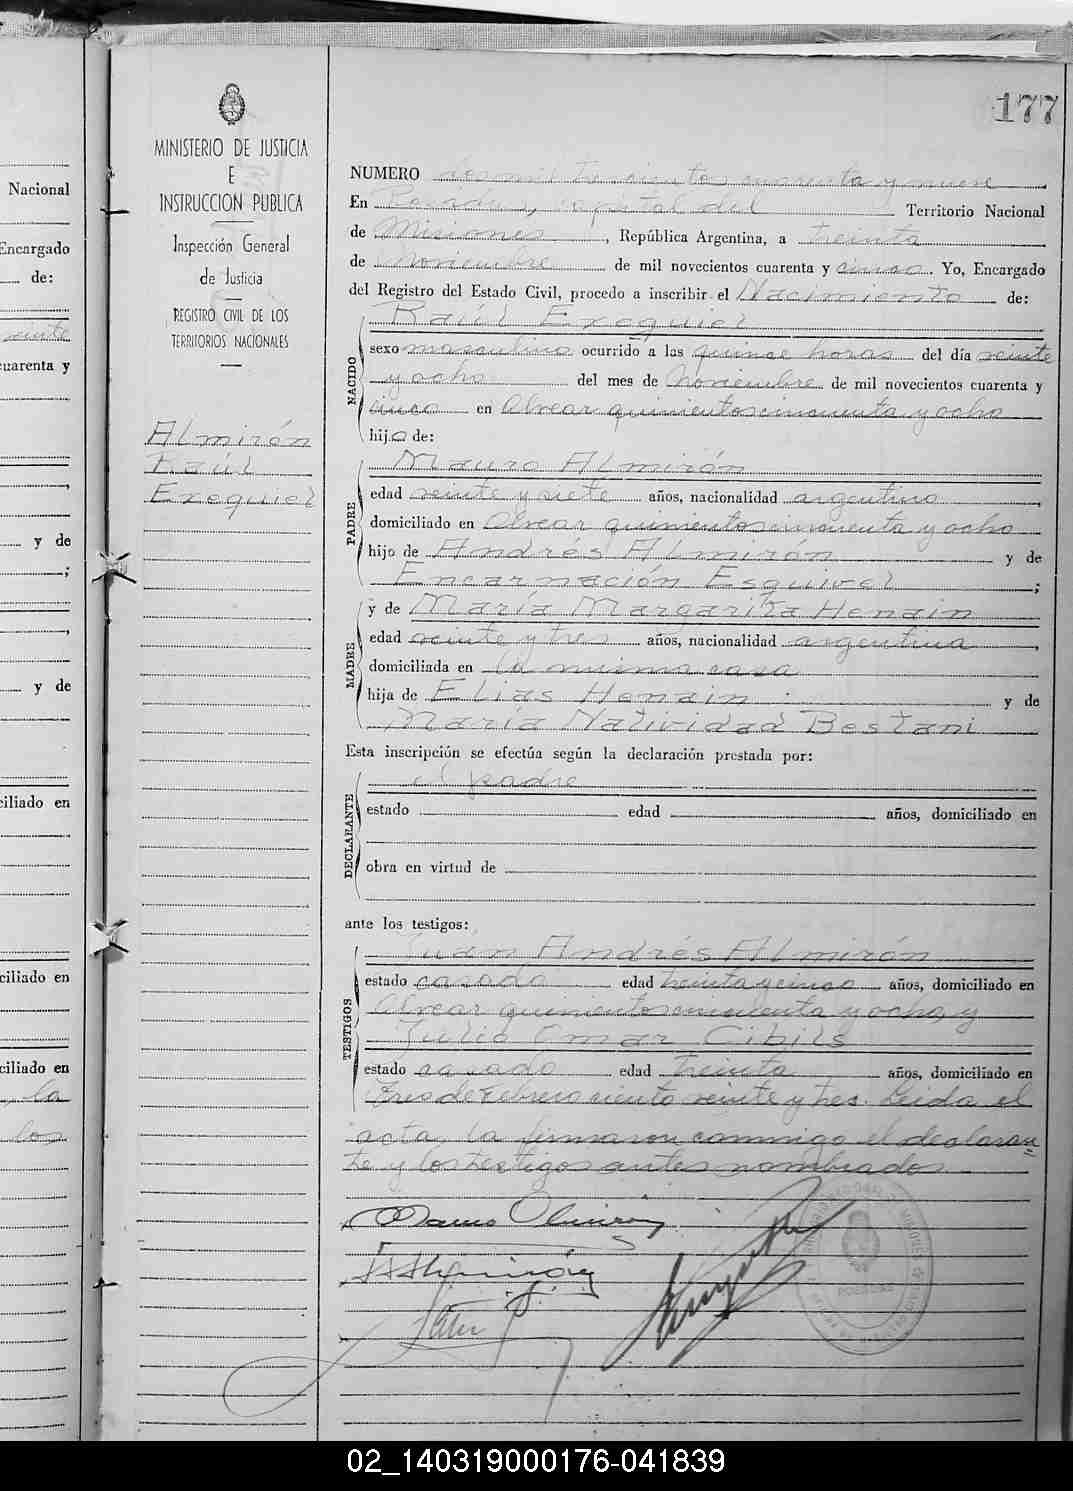 177
MINISTERIO DE JUSTICIA
E
INSTRUCCION PUBLICA
Inspección General
de Justicia
REGISTRO CIVIL DE LOS
TERRITORIOS NACIONALES
Almirón
Raúl
Exequiel
Nacional
Encargado
de:
veinte
cuarenta y
y de
;
y de
ciliado en
ciliado en
ciliado en
, la
los
NUMERO dos mil trescientos cuarenta y nueve
En Posadas, capital del Territorio Nacional
de Misiones, República Argentina, a treinta
de noviembre de mil novecientos cuarenta y cinco. Yo, Encargado
del Registro del Estado Civil, procedo a inscribir el Nacimiento de:
NACIDO
Raúl Exequiel
sexo masculino ocurrido a las quince horas del día veinte
y ocho del mes de noviembre de mil novecientos cuarenta y
cinco en Alvear quinientos cincuenta y ocho
hijo de:
PADRE
Mauro Almirón
edad veinte y siete años, nacionalidad argentino,
domiciliado en Alvear quinientos cincuenta y ocho
hijo de Andrés Almirón y de
Encarnación Esquivel;
MADRE
y de María Margarita Henain
edad veinte y tres años, nacionalidad argentina,
domiciliada en la misma casa
hija de Elias Henain y de
María Natividad Bestani
Esta inscripción se efectúa según la declaración prestada por:
DECLARANTE
el padre
estado edad años, domiciliado en
obra en virtud de
ante los testigos:
TESTIGOS
Juan Andrés Almirón
estado casado edad treinta y cinco años, domiciliado en
Alvear quinientos cincuenta y ocho y
Julio Omar Cibils
estado casado edad treinta años, domiciliado en
Tres de Febrero ciento veinte y tres. Leida el
acta, la firmaron conmigo el declaran
te y los testigos antes nombrados.
Mauro Almirón
JAAlmirón
POSADAS
02_140319000176-041839